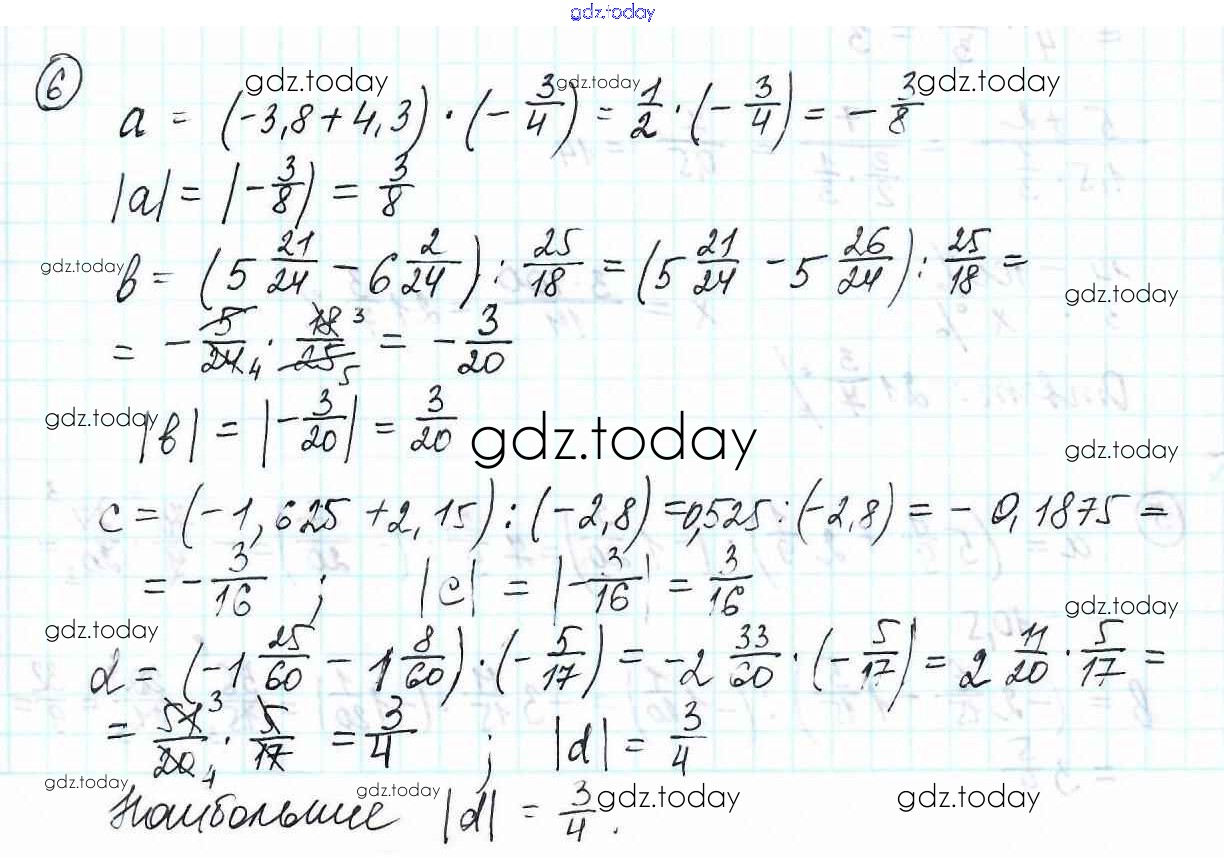 gdz.today
6
gdz.today gdz.today gdz.today
a = (-3,8 + 4,3) · (- 3/4) = 1/2 · (- 3/4) = - 3/8
|a| = |- 3/8| = 3/8
gdz.today
в = (5 21/24 - 6 2/24) : 25/18 = (5 21/24 - 5 26/24) : 25/18 =
gdz.today
= - 5/24 4 · 18 3/25 5 = - 3/20
gdz.today
|в| = |- 3/20| = 3/20
gdz.today
gdz.today
c = (-1,625 + 2,15) : (-2,8) = 0,525 : (-2,8) = - 0,1875 =
= - 3/16 ; |c| = |- 3/16| = 3/16
gdz.today
gdz.today
d = (-1 25/60 - 1 8/60) · (- 5/17) = -2 33/60 · (- 5/17) = 2 11/20 · 5/17 =
= 51 3/20 4 · 5/17 = 3/4 ; |d| = 3/4
gdz.today gdz.today gdz.today gdz.today
Наибольшие |d| = 3/4 .